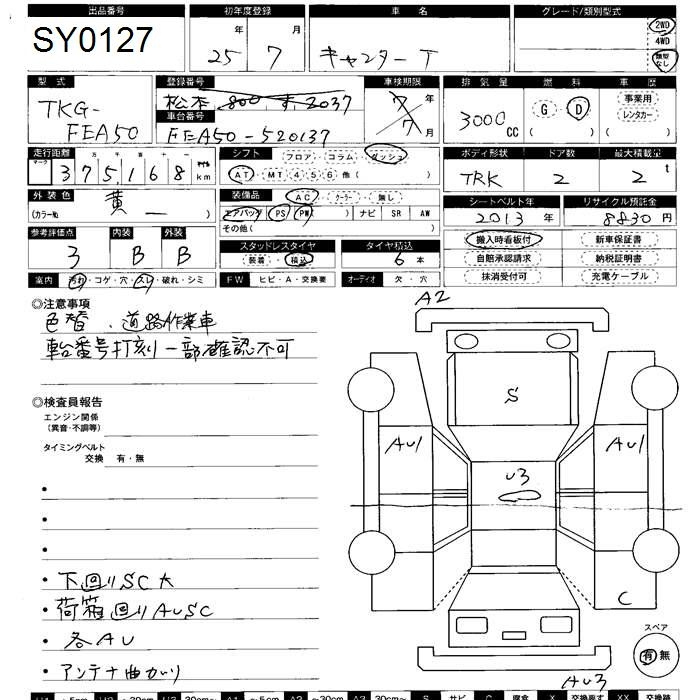 出品番号 初年度登録 車名 グレード/類別型式
SY0127 25年 7月 キャンターT 2WD 4WD 類型なし
型式 登録番号 車検期限 排気量 燃料 車歴
TKG-FEA50 松本 800 す 2037 7年 7月 3000CC G D ( ) 事業用 レンタカー ( )
車台番号
FEA50-520137
走行距離 シフト フロア・コラム・ダッシュ ボディ形状 ドア数 最大積載量
マーク 十万千百 3 7 5,1 6 8 マイル km AT・MT 4 5 6 他( ) TRK 2 2 t
外装色 装備品 AC・クーラー・無し シートベルト年 リサイクル預託金
(カラー№) 黄 ー ) エアバッグ( PS PW ) ナビ SR AW 2013年 8830円
その他( )
参考評価点 内装 外装 スタッドレスタイヤ タイヤ積込 搬入時看板付 新車保証書
3 B B 装着・積込 6本 自賠承認請求 納税証明書
室内 汚れ・コゲ・穴・スレ・破れ・シミ FW ヒビ・A・交換要 オーディオ 欠・穴 抹消受付可 充電ケーブル
◎注意事項
色替、道路作業車
車台番号打刻一部確認不可
◎検査員報告
エンジン関係
(異音・不調等)
タイミングベルト
交換 有・無
・
・
・
・下回りSC大
・荷箱回りAUSC
・各AU
・アンテナ曲がり
A2
S
AU1 AU1
U3
C
スペア
有 無
AU3